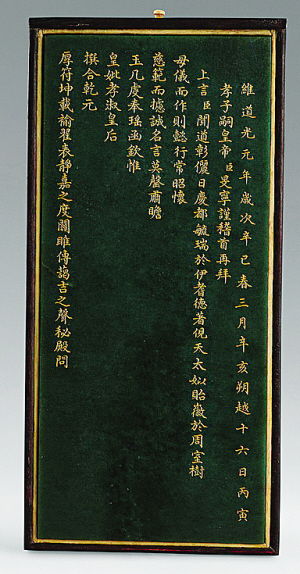 維道光元年歲次辛巳春三月辛亥朔越十六日丙寅
孝子嗣皇帝臣旻寧謹稽首再拜
上言臣聞道彰儷日慶都毓瑞於伊耆德著俔天太姒貽徽於周室樹
母儀而作則懿行常昭懷
慈範而攄誠名言莫罄肅瞻
玉几虔奉瑤函欽惟
皇妣孝淑皇后
撰合乾元
厚符坤載褕翟表靜嘉之度關雎傳藹吉之聲秘殿問